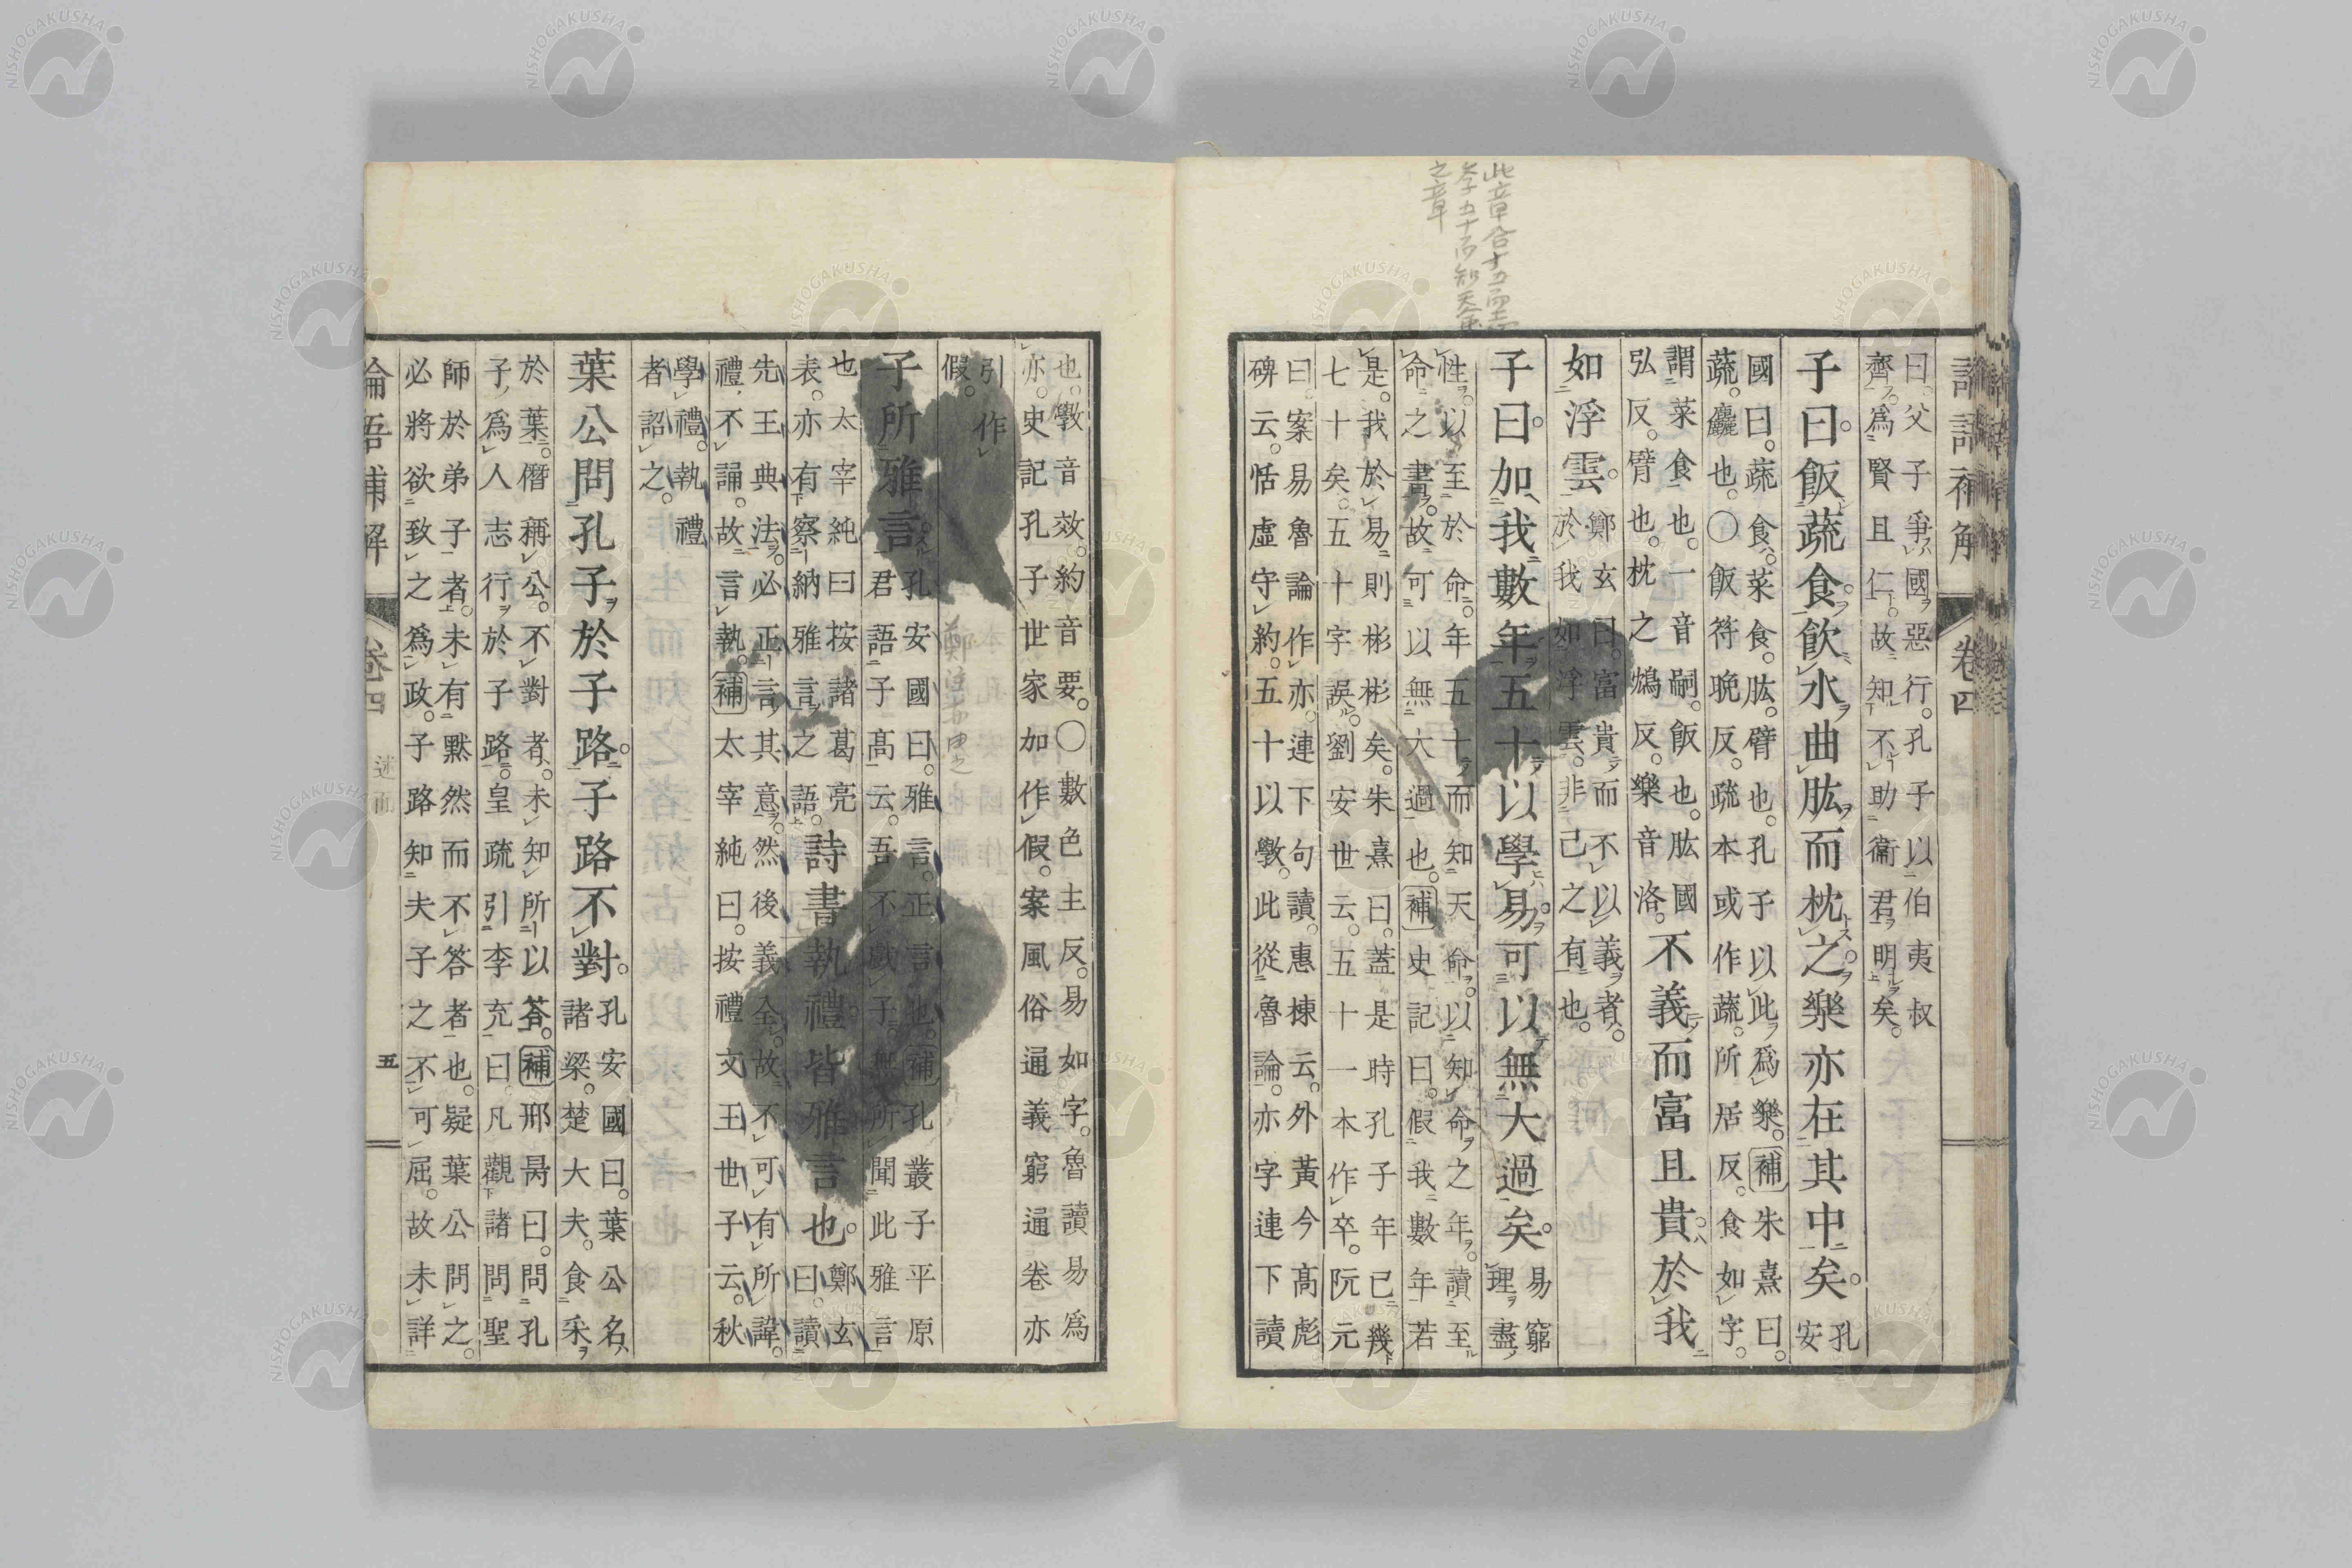 論語補解 卷四
此章合十五而志
学五十而知天命
之章
曰。父子爭國惡行。孔子以伯夷叔
齊。爲賢且仁。故知不助衞君明矣。
子曰。飯蔬食。飲水曲肱而枕之。樂亦在其中矣。孔
安
國曰。蔬食。菜食。肱。臂也。孔子以此爲樂。補朱熹曰。
蔬。麤也。〇飯符晚反。疏本或作蔬。所居反。食如字。
謂菜食也。一音嗣。飯也。肱國
弘反。臂也。枕之鴆反。樂音洛。
不義而富且貴。於我
如浮雲。
鄭玄曰。富貴而不以義者。
於我如浮雲。非己之有也。
子曰。加我數年。五十以學易。可以無大過矣。易窮
理盡
性。以至於命。年五十而知天命。以知命之年。讀至
命之書。故可以無大過也。補史記曰。假我數年若
是。我於易則彬彬矣。朱熹曰。蓋是時孔子年已幾
七十矣。五十字誤。劉安世云。五十一本作卒。阮元
曰。案易魯論作亦。連下句讀。惠棟云。外黃今高彪
碑云。恬虛守約。五十以斆。此從魯論。亦字連下讀
也。斆音效。約音要。〇數色主反。易如字。魯讀易爲
亦。史記孔子世家加作假。案風俗通義窮通卷亦
引作
假。
子所雅言。孔安國曰。雅言。正言也。補孔叢子平原
君語子高云。吾不戲子。無所聞此雅言
也太宰純曰按諸葛亮
表。亦有察納雅言之語。
詩書執禮。皆雅言也。鄭玄
曰。讀
先王典法。必正言其意。然後義全。故不可有所諱
禮。不誦。故言執。補太宰純曰。按禮文王世子云。秋
學禮。執禮
者詔之。
葉公問孔子於子路。子路不對。孔安國曰。葉公名
諸梁。楚大夫。食采
於葉。僭稱公。不對者。未知所以荅。補邢昺曰。問孔
子爲人志行於子路。皇疏引李充曰。凡觀諸問聖
師於弟子者。未有默然而不答者也。疑葉公問之。
必將欲致之爲政。子路知夫子之不可屈。故未詳
論語補解 卷四 述而 五